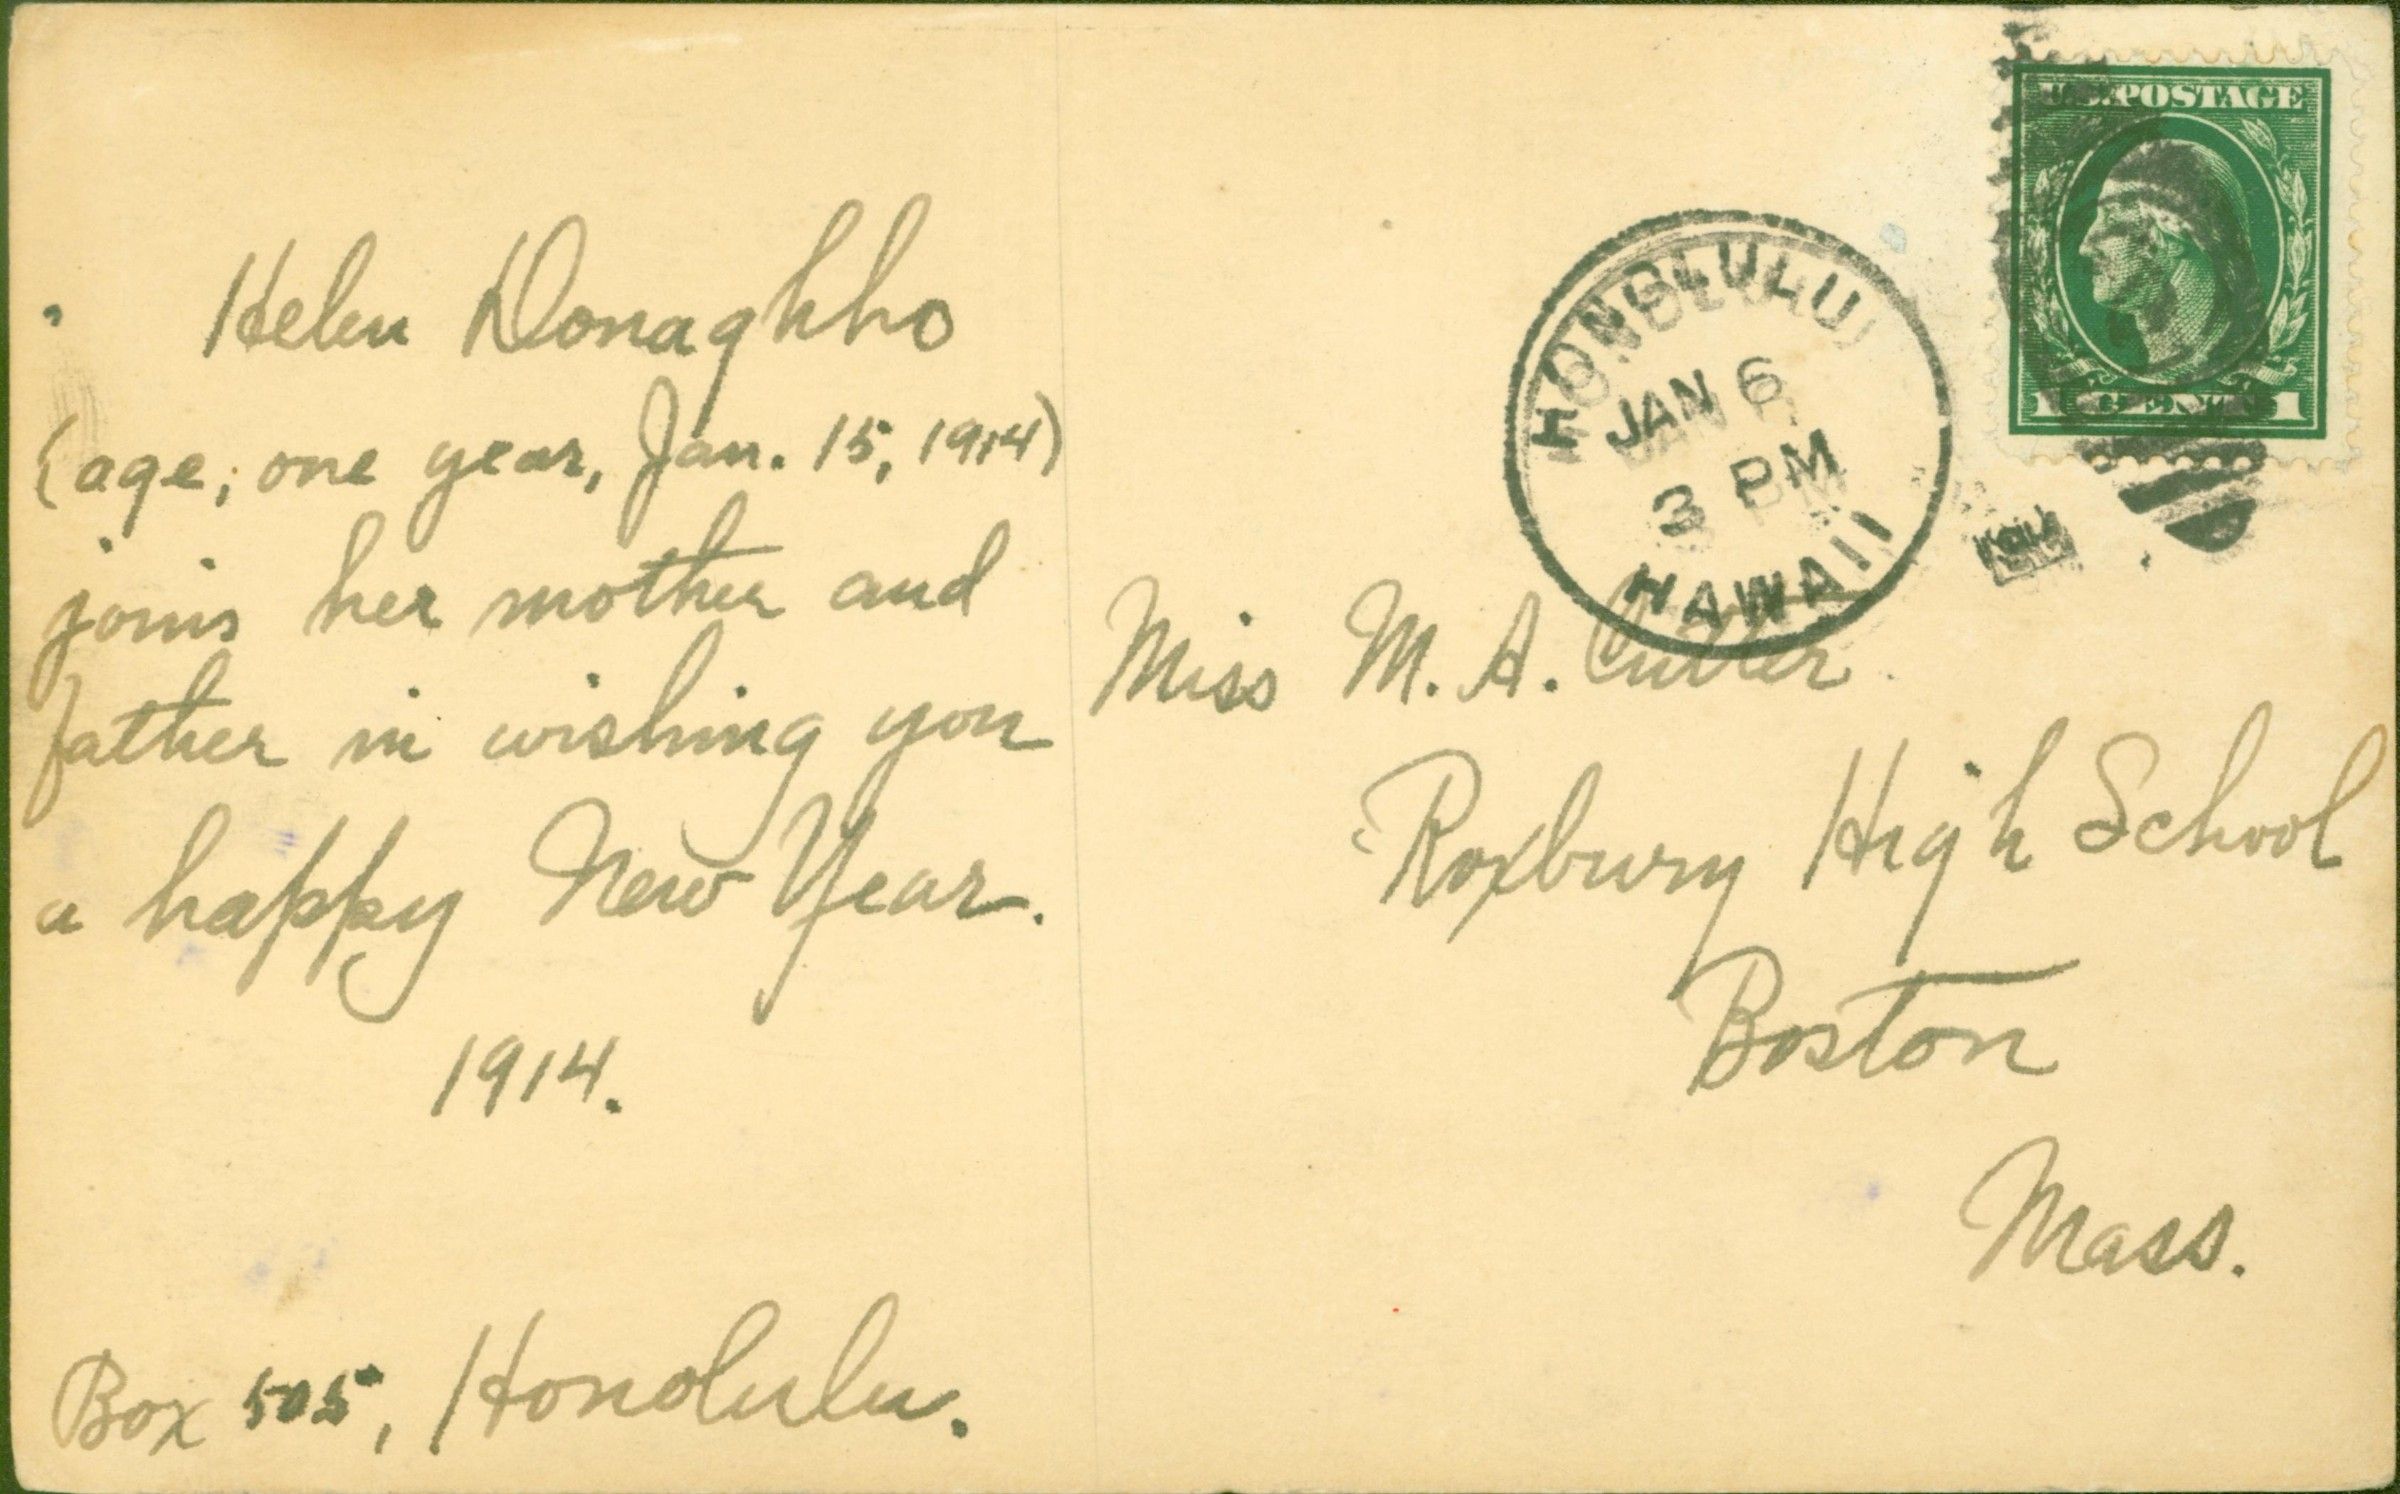 Helen Donaghho
(age, one year, Jan. 15, 1914)
joins her mother and
father in wishing you
a happy New Year.
1914.
Box 505, Honolulu.
U.S. POSTAGE
1 CENT 1
HONOLULU
JAN 6
3 PM
HAWAII
Miss M. A. Cutler
Roxbury High School
Boston
Mass.